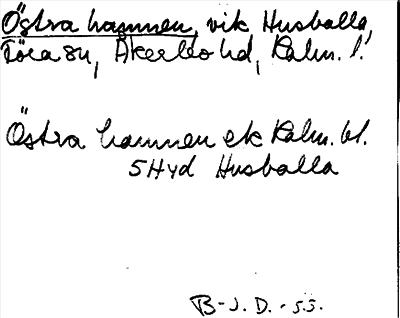 Östra hamnen, vik Husvalla,
Töra sn, Åkerbo hd, Kalm. l.
Östra hamnen ek Kalm. bl.
5Hyd Husvalla
B-J. D. - 53.